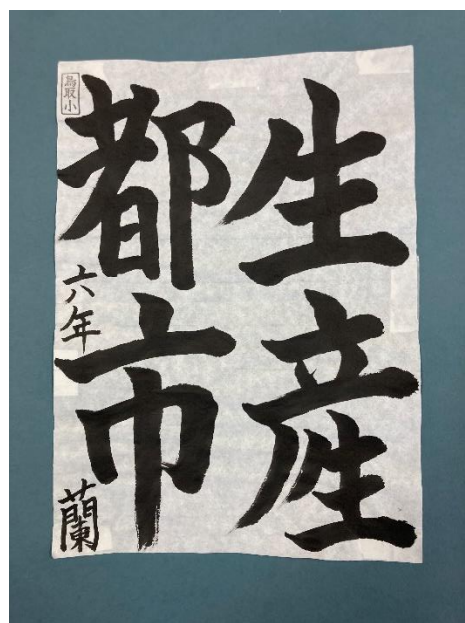 生産
都市
鳥取小
六年
蘭